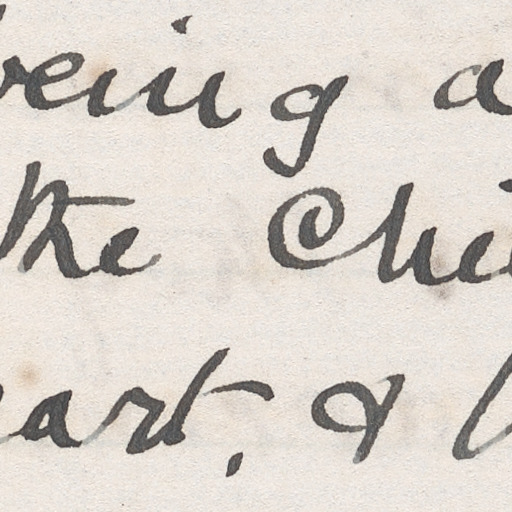 being a
the Chi
eart, &